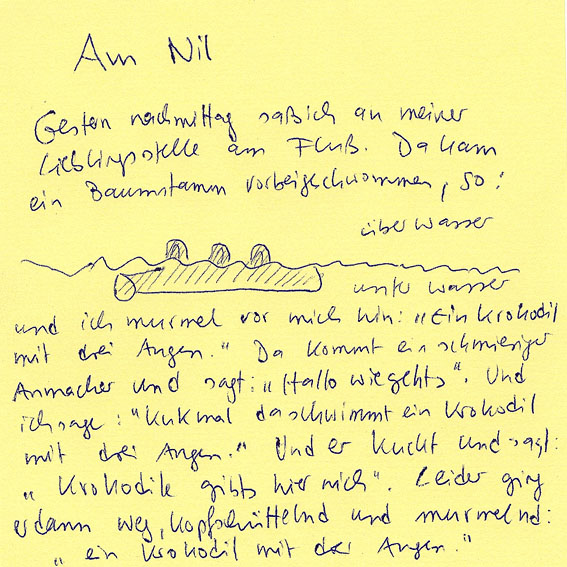 Am Nil
Gestern nachmittag saß ich an meiner
Lieblingsstelle am Fluß. Da kam
ein Baumstamm vorbeigeschwommen, so:
über wasser
unter wasser
und ich murmel vor mich hin: „Ein Krokodil
mit drei Augen." Da kommt ein schmieriger
Anmacher und sagt: „Hallo wie gehts". Und
ich sage: "Kuk mal da schwimmt ein Krokodil
mit drei Augen." Und er kuckt und sagt:
„Krokodile gibts hier nich". Leider ging
er dann weg, kopfschüttelnd und murmelnd:
„ein Krokodil mit drei Augen."